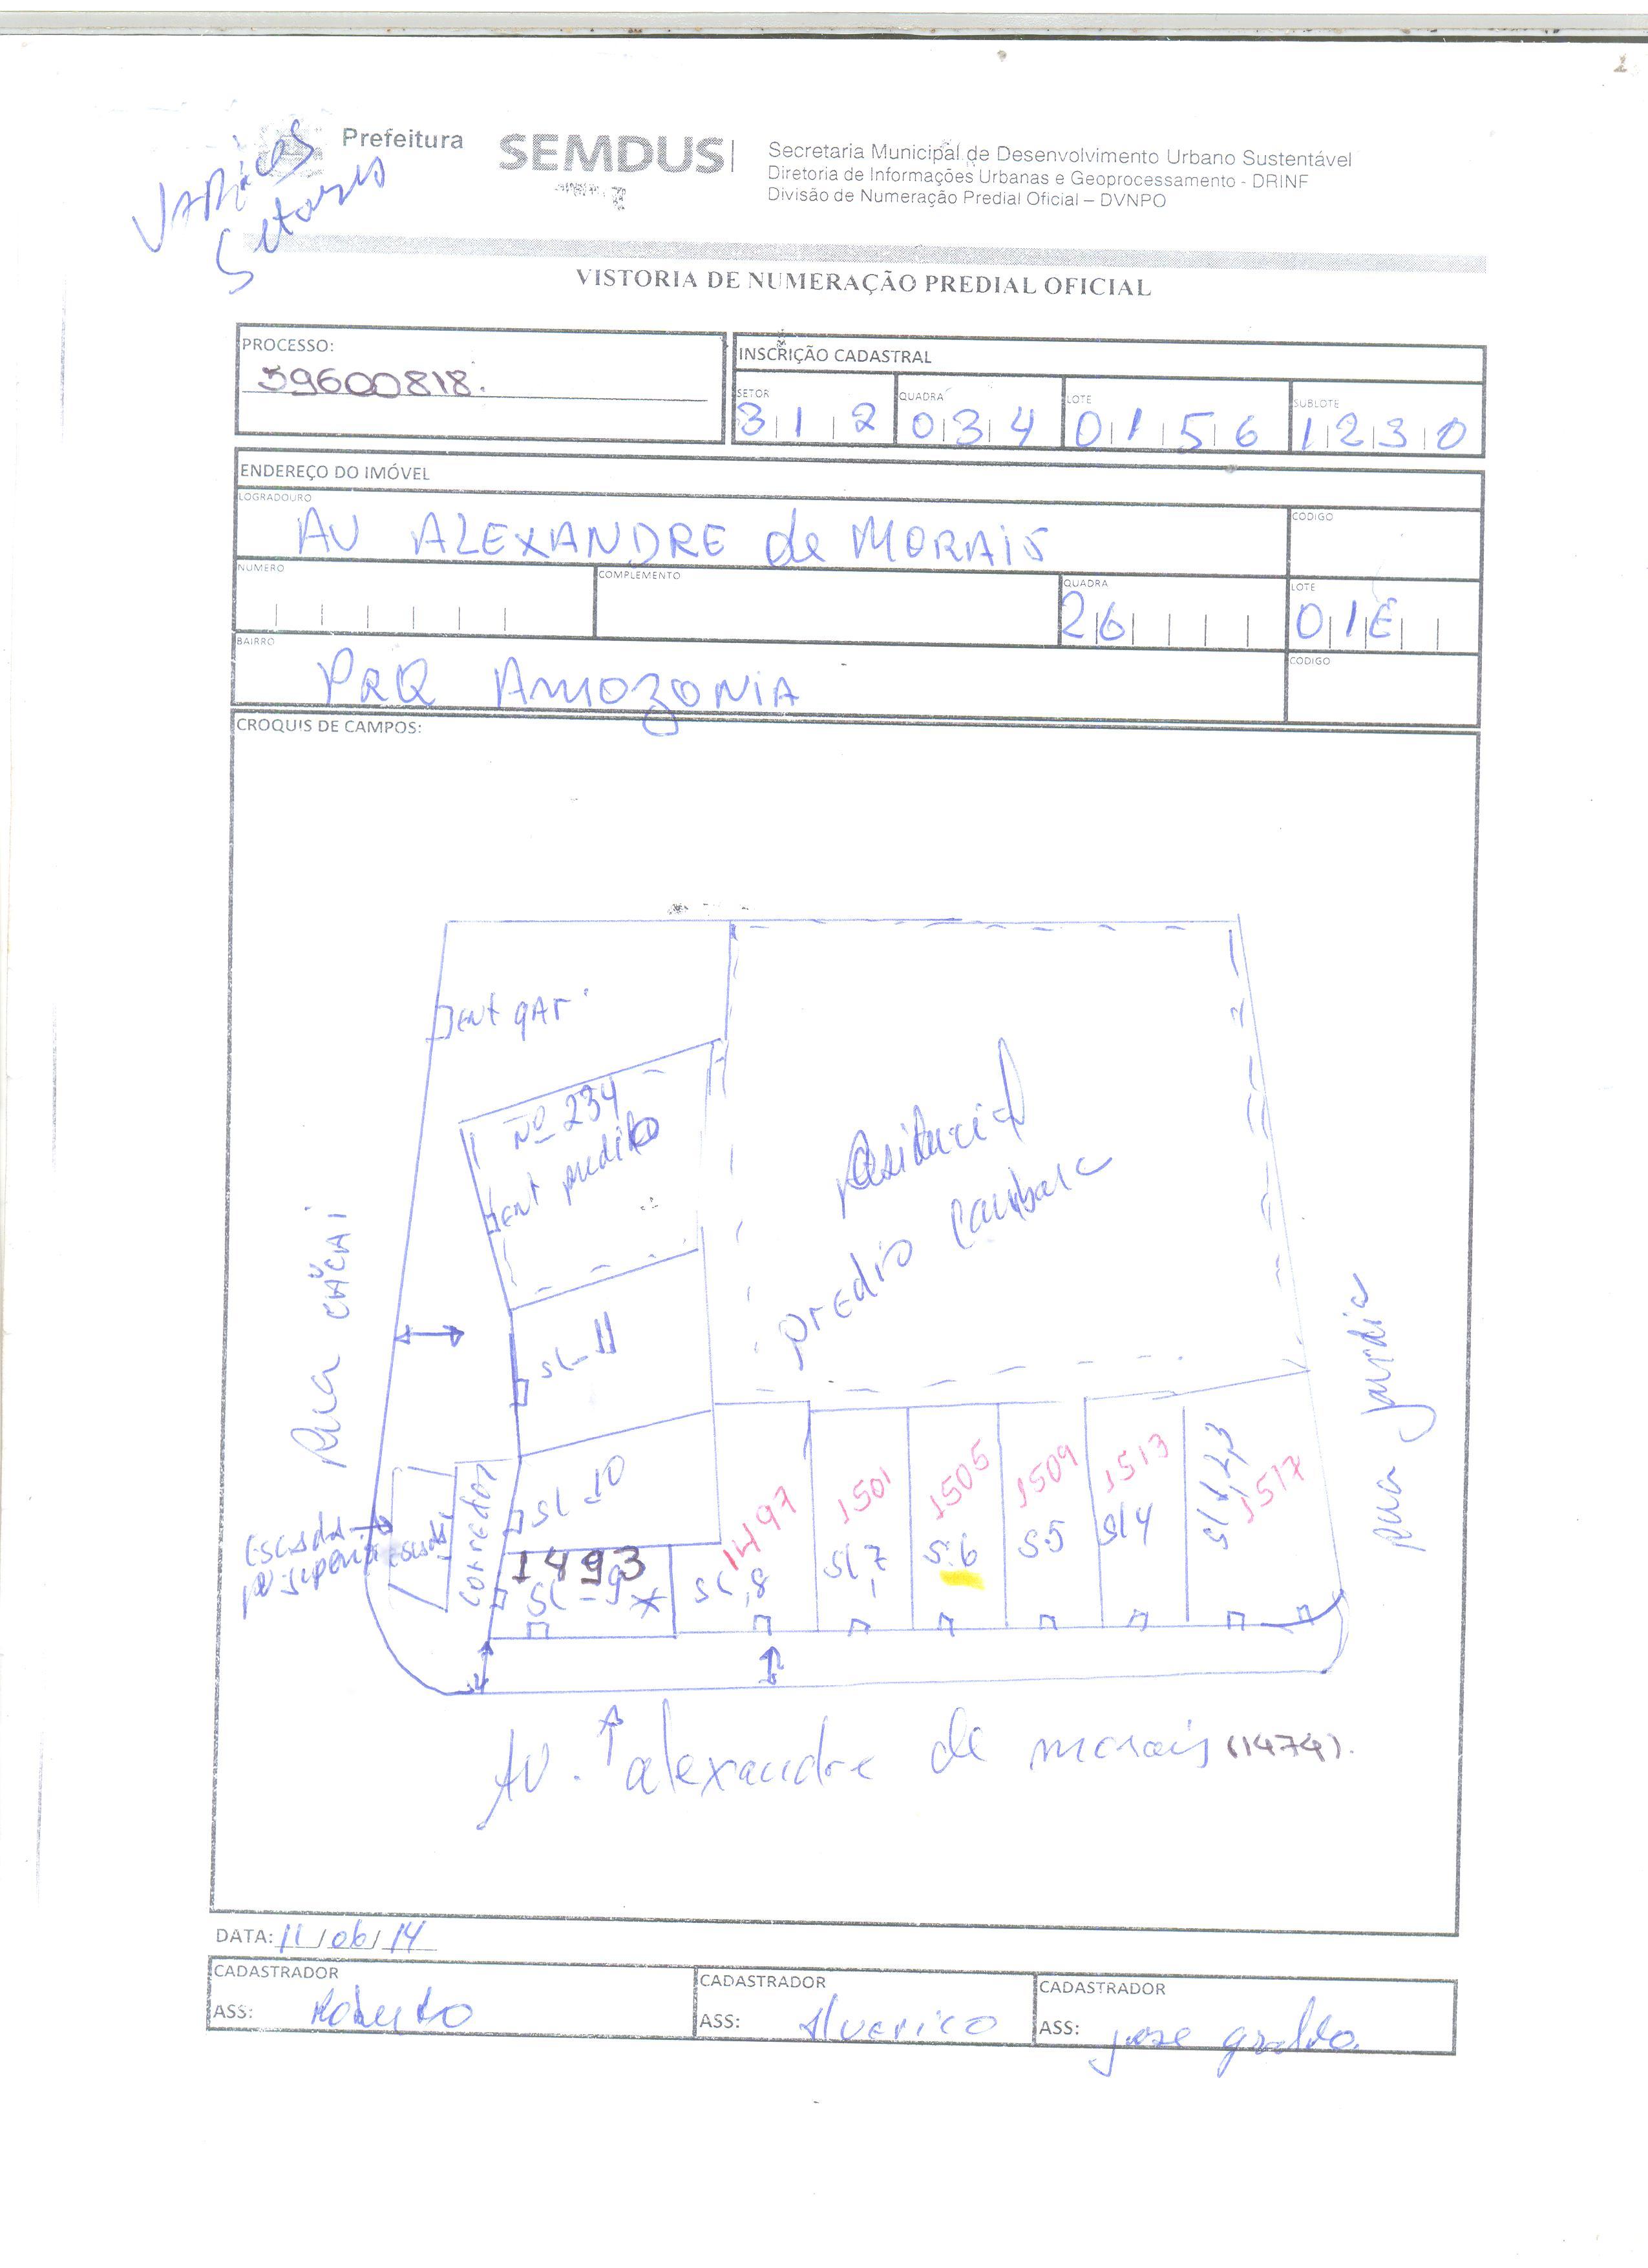 VARIOS
Setores
Prefeitura
SEMDUS
Secretaria Municipal de Desenvolvimento Urbano Sustentável
Diretoria de Informações Urbanas e Geoprocessamento - DRINF
Divisão de Numeração Predial Oficial – DVNPO
VISTORIA DE NUMERAÇÃO PREDIAL OFICIAL
PROCESSO:
59600818.
INSCRIÇÃO CADASTRAL
SETOR QUADRA LOTE SUBLOTE
312 034 0156 1230
ENDEREÇO DO IMÓVEL
LOGRADOURO CÓDIGO
AV ALEXANDRE de MORAIS
NÚMERO COMPLEMENTO QUADRA LOTE
26 01E
BAIRRO CÓDIGO
PRQ AMOZONIA
CROQUIS DE CAMPOS:
ENT gAr
Nº 234
ENT predio
Residencial
predio
Rua
SL-11
SL-10
Rua jundia
Escada
Escada
CORREDOR
1493
SL-9*
1497
SL,8
1501
SL,7
1505
S.6
1509
S5
1513
Sl4
Sl 1,2,3
1517
AV. alexandre de morais (1474).
DATA: 11/06/14
CADASTRADOR CADASTRADOR CADASTRADOR
ASS: Roberto ASS: Alverico ASS: jose graldo.